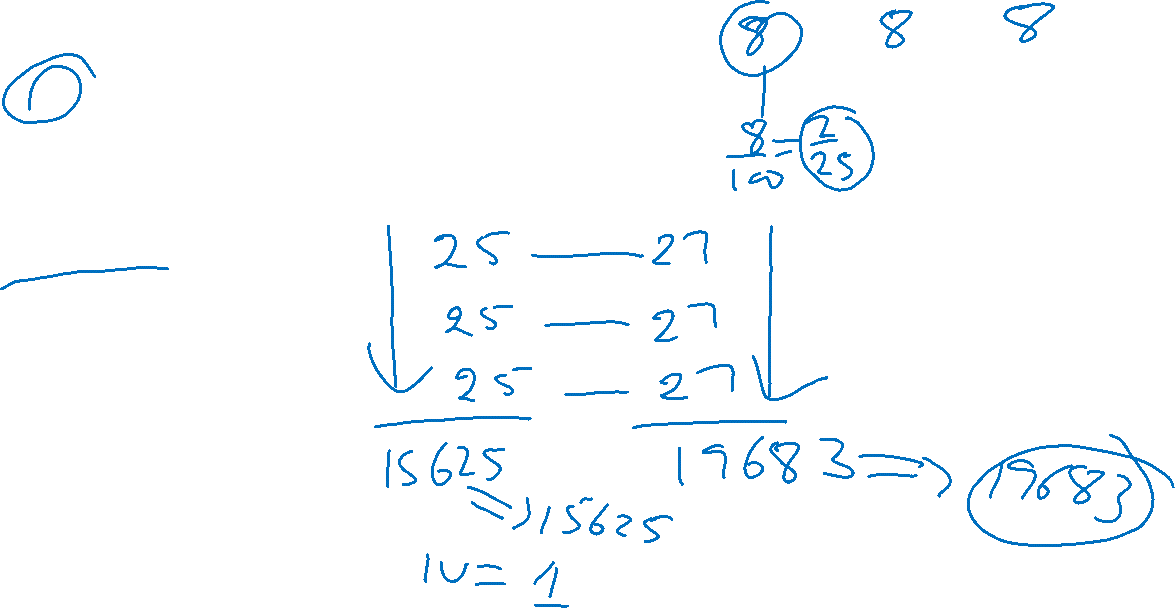 8 8 8
8/100 = 2/25
25 — 27
25 — 27
25 — 27
15625 19683 => 19683
=> 15625
IU = 1